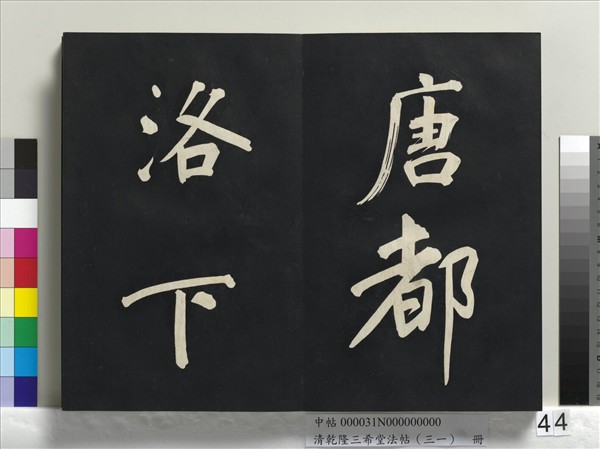 唐都
洛下
中帖 000031N000000000
清乾隆三希堂法帖（三一） 冊
44